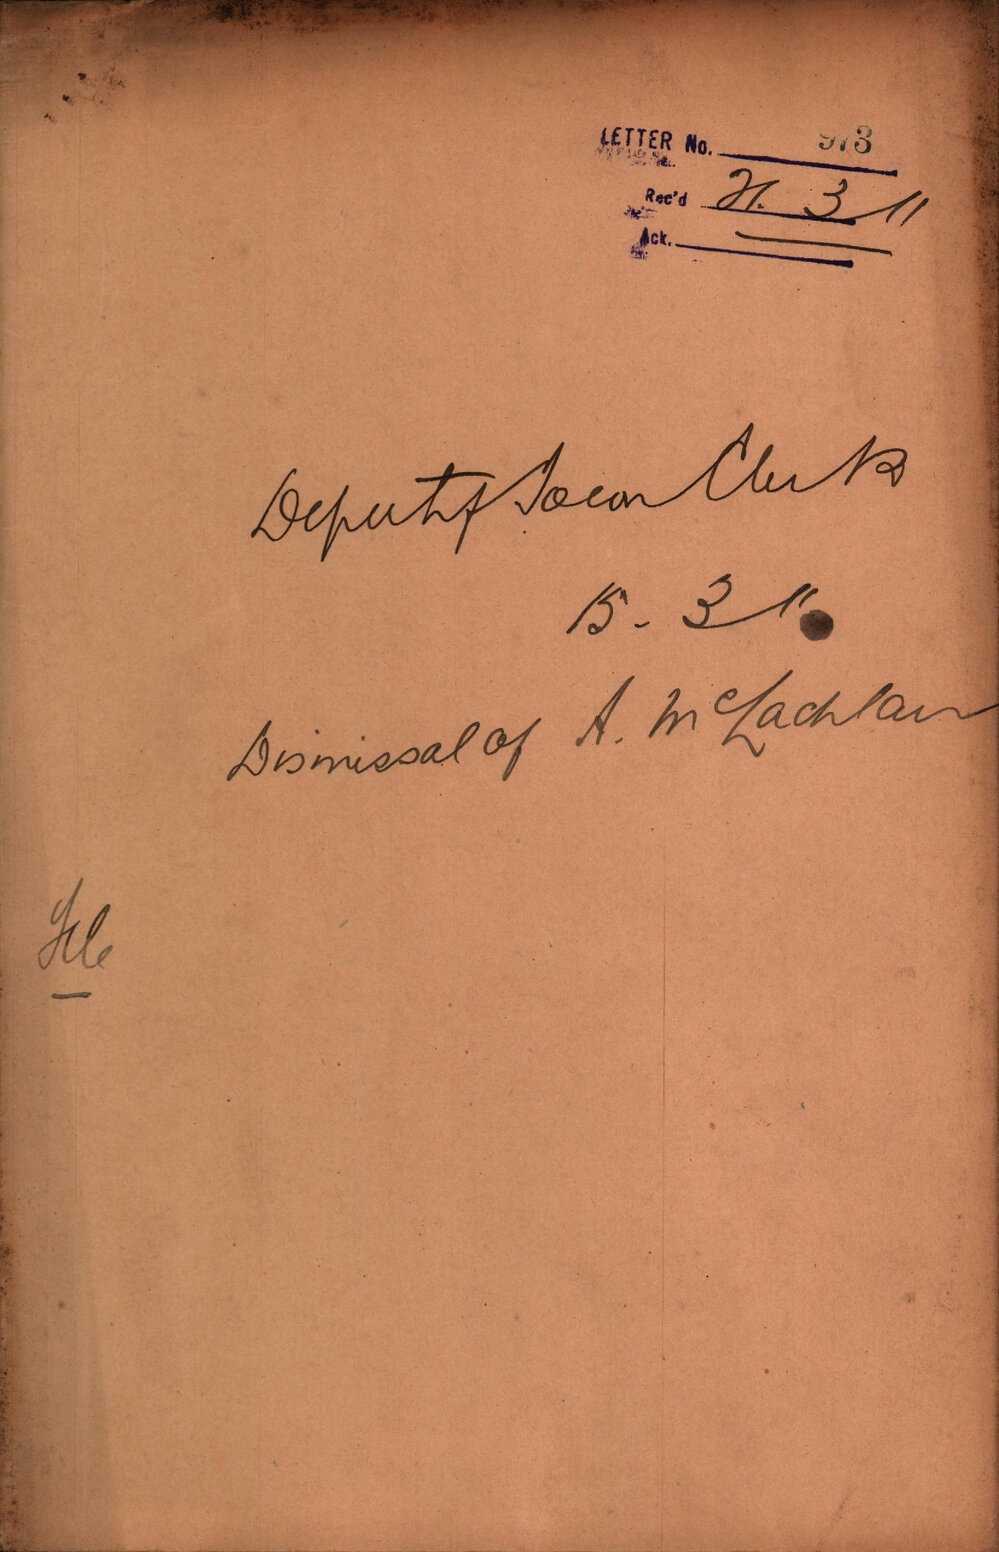 LETTER No. 973
Rec'd 21. 3 11
Ack.
Deputy Town Clerk
15. 3 11.
Dismissal of A. McLachlan
File